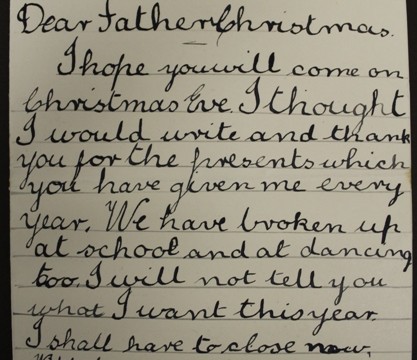 Dear Father Christmas.
I hope you will come on
Christmas Eve. I thought
I would write and thank
you for the presents which
you have given me every
year. We have broken up
at school and at dancing
too. I will not tell you
what I want this year.
I shall have to close now.